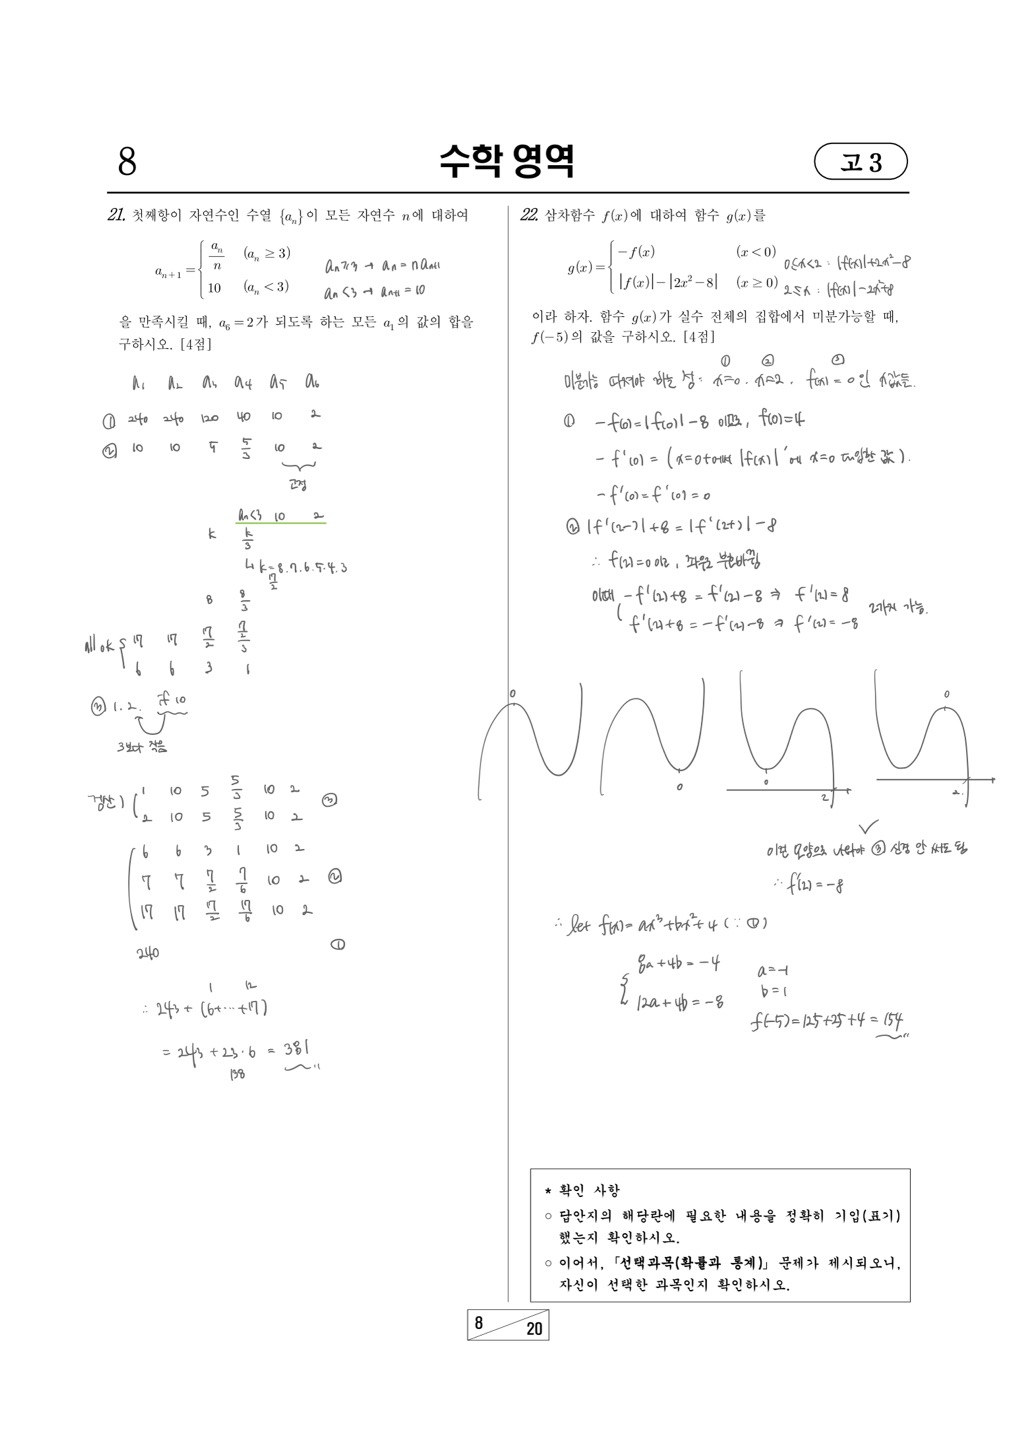 8
수학 영역
고 3
21. 첫째항이 자연수인 수열 {aₙ}이 모든 자연수 n에 대하여
aₙ₊₁ = { aₙ/n (aₙ ≥ 3)
10 (aₙ < 3)
aₙ≥3 → aₙ = n aₙ₊₁
aₙ<3 → aₙ₊₁ = 10
을 만족시킬 때, a₆ = 2가 되도록 하는 모든 a₁의 값의 합을
구하시오. [4점]
a₁ a₂ a₃ a₄ a₅ a₆
① 240 240 120 40 10 2
② 10 10 5 5/3 10 2
고정
aₙ<3 10 2
k k/3
↳ k=8.7.6.5.4.3
17/2
8 8/3
all ok
17 17 17/2 17/2/3
6 6 3 1
③ 1. 2. 10
3보다 작음
검산)
1 10 5 5/3 10 2 ③
2 10 5 5/3 10 2
6 6 3 1 10 2
7 7 7/2 7/6 10 2 ②
17 17 17/2 17/6 10 2
240 ①
1 12
∴ 243 + (6+⋯+17)
= 243 + 23·6 = 381
138
22. 삼차함수 f(x)에 대하여 함수 g(x)를
g(x) = { −f(x) (x < 0)
|f(x)| − |2x² − 8| (x ≥ 0)
0≤x<2 : |f(x)|+2x²−8
2≤x : |f(x)|−2x²+8
이라 하자. 함수 g(x)가 실수 전체의 집합에서 미분가능할 때,
f(−5)의 값을 구하시오. [4점]
① ② ③
미분가능 따져야 하는 점: x=0. x=2. f(x)=0인 x값들.
① −f(0)=|f(0)|−8 이므로, f(0)=4
−f'(0) = (x=0+에서 |f(x)|'에 x=0 대입한 값).
−f'(0)=f'(0)=0
② |f'(2−)|+8=|f'(2+)|−8
∴ f(2)=0이고, 좌우로 부호바뀜
이때 −f'(2)+8 = f'(2)−8 ⇒ f'(2)=8
f'(2)+8 = −f'(2)−8 ⇒ f'(2)=−8
2가지 가능.
0
0
0
2
0
2
✓
이런 모양으로 나와야 ③ 신경 안 써도 됨
∴ f'(2)=−8
∴ let f(x)=ax³+bx²+4 (∵ ①)
8a+4b=−4
12a+4b=−8
a=−1
b=1
f(−5)=125+25+4=154
* 확인 사항
○ 답안지의 해당란에 필요한 내용을 정확히 기입(표기)
했는지 확인하시오.
○ 이어서, 「선택과목(확률과 통계)」 문제가 제시되오니,
자신이 선택한 과목인지 확인하시오.
8
20